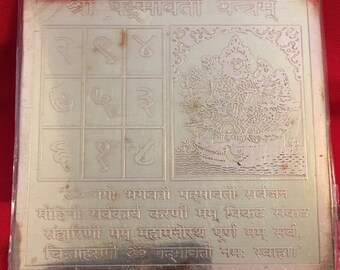 श्री पद्मावती यन्त्रम्
२ ९ ४
७ ५ ३
६ १ ८
ॐ नमः भगवती पद्मावती सर्वजन
मोहिनी सर्वकार्य करणी मम् विकट संकट
संहारिणी मम् महामनोरथ पूर्ण मम् सर्व
चिन्ताहरिणी ॐ पद्मावती नमः स्वाहा।